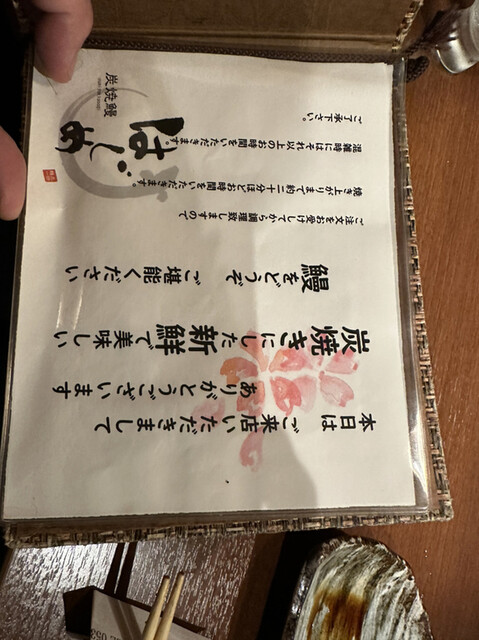 本日は　ご来店いただきまして
ありがとうございます
炭焼きにした新鮮で美味しい
鰻をどうぞ　ご堪能ください
ご注文をお受けしてから調理致しますので
焼き上がりまで約二十分ほどお時間をいただきます。
混雑時にはそれ以上のお時間をいただきます。
ご了承下さい。
炭焼鰻
はじめ